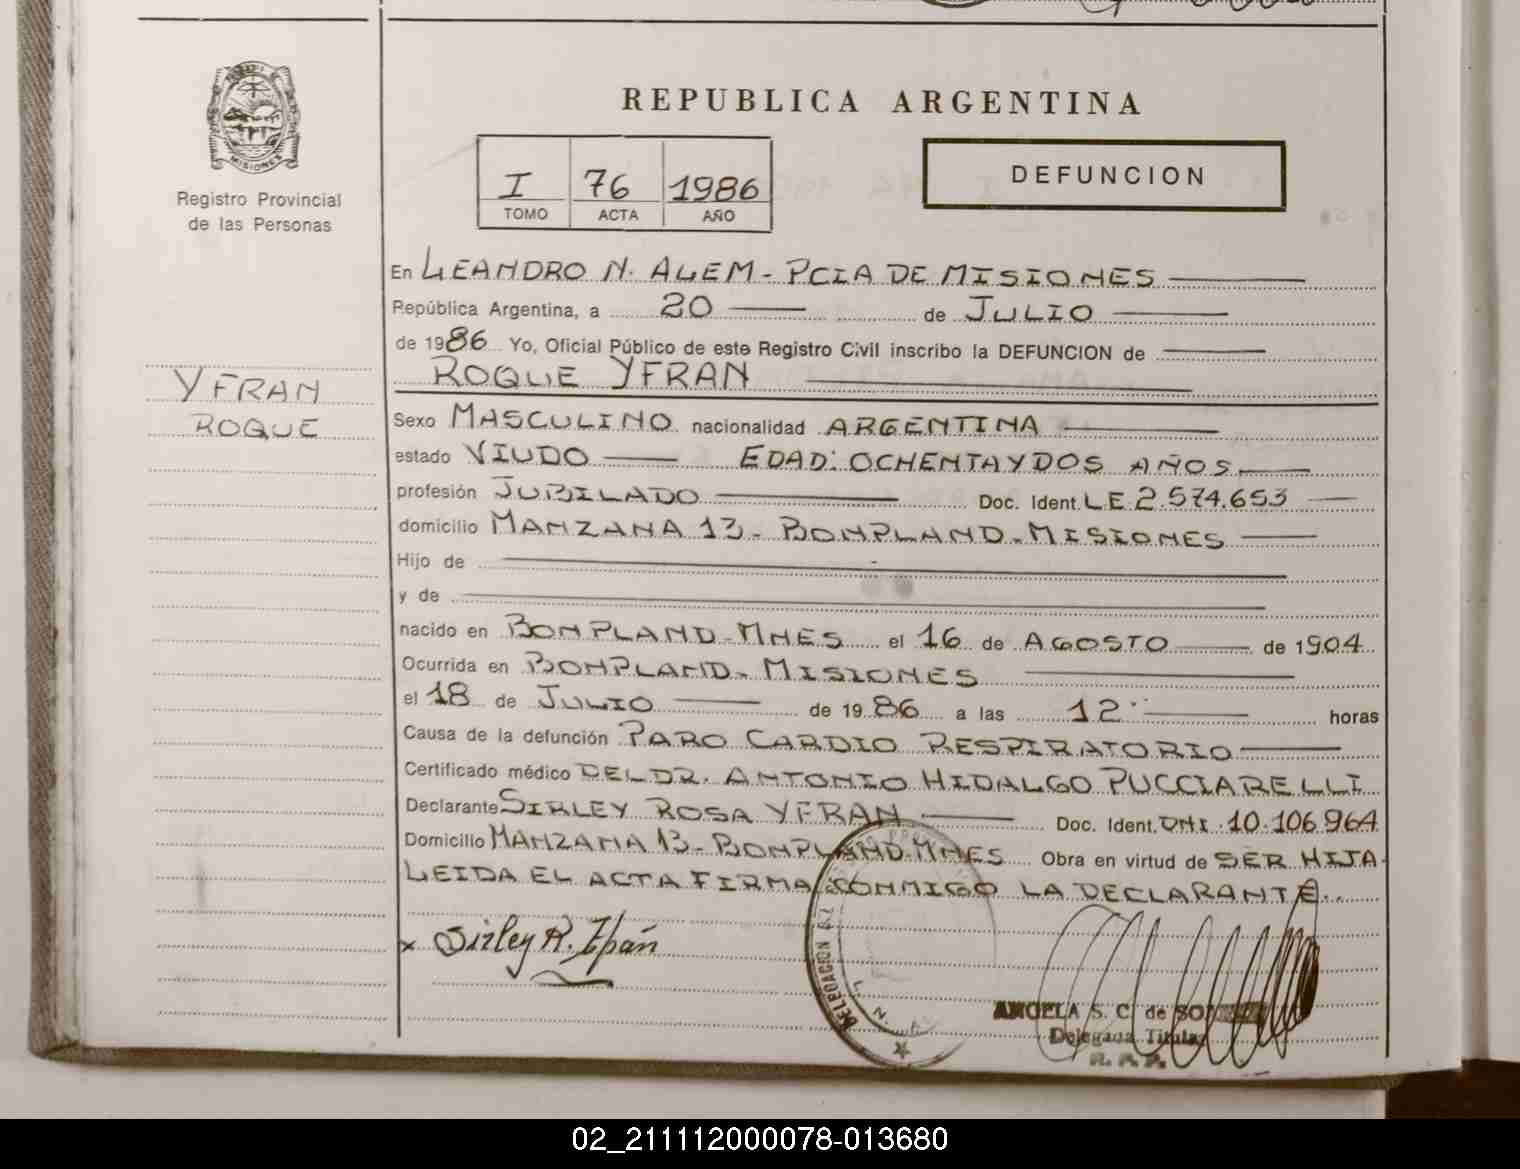 REPUBLICA ARGENTINA
MISIONES
Registro Provincial
de las Personas
I 76 1986
TOMO ACTA AÑO
DEFUNCION
En LEANDRO N. ALEM - PCIA DE MISIONES
República Argentina, a 20 de JULIO
de 1986 Yo, Oficial Público de este Registro Civil inscribo la DEFUNCION de
ROQUE YFRAN
YFRAN
ROQUE
Sexo MASCULINO nacionalidad ARGENTINA
estado VIUDO EDAD: OCHENTAYDOS AÑOS
profesión JUBILADO Doc. Ident. L.E. 2.574.653
domicilio MANZANA 13 - BONPLAND - MISIONES
Hijo de
y de
nacido en BONPLAND - MNES el 16 de AGOSTO de 1904
Ocurrida en BONPLAND - MISIONES
el 18 de JULIO de 1986 a las 12 horas
Causa de la defunción PARO CARDIO RESPIRATORIO
Certificado médico DEL DR. ANTONIO HIDALGO PUCCIARELLI
Declarante SIRLEY ROSA YFRAN Doc. Ident. DNI 10.106.964
Domicilio MANZANA 13 - BONPLAND - MNES Obra en virtud de SER HIJA.
LEIDA EL ACTA FIRMA CONMIGO LA DECLARANTE.
x Sirley R. Yfrán
DELEGACION
L. N.
ANGELA S. C. de
Delegada Titular
R. P. P.
02_211112000078-013680